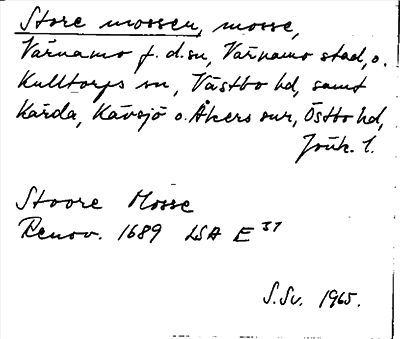 Store mossen, mosse,
Värnamo f. d. sn, Värnamo stad, o.
Kulltorps sn, Västbo hd, samt
Kärda, Kävsjö o. Åkers snr, Östbo hd,
Jönk. l.
Stoore Mosse
Renov. 1689 LSA E 31
S. Sv. 1965.